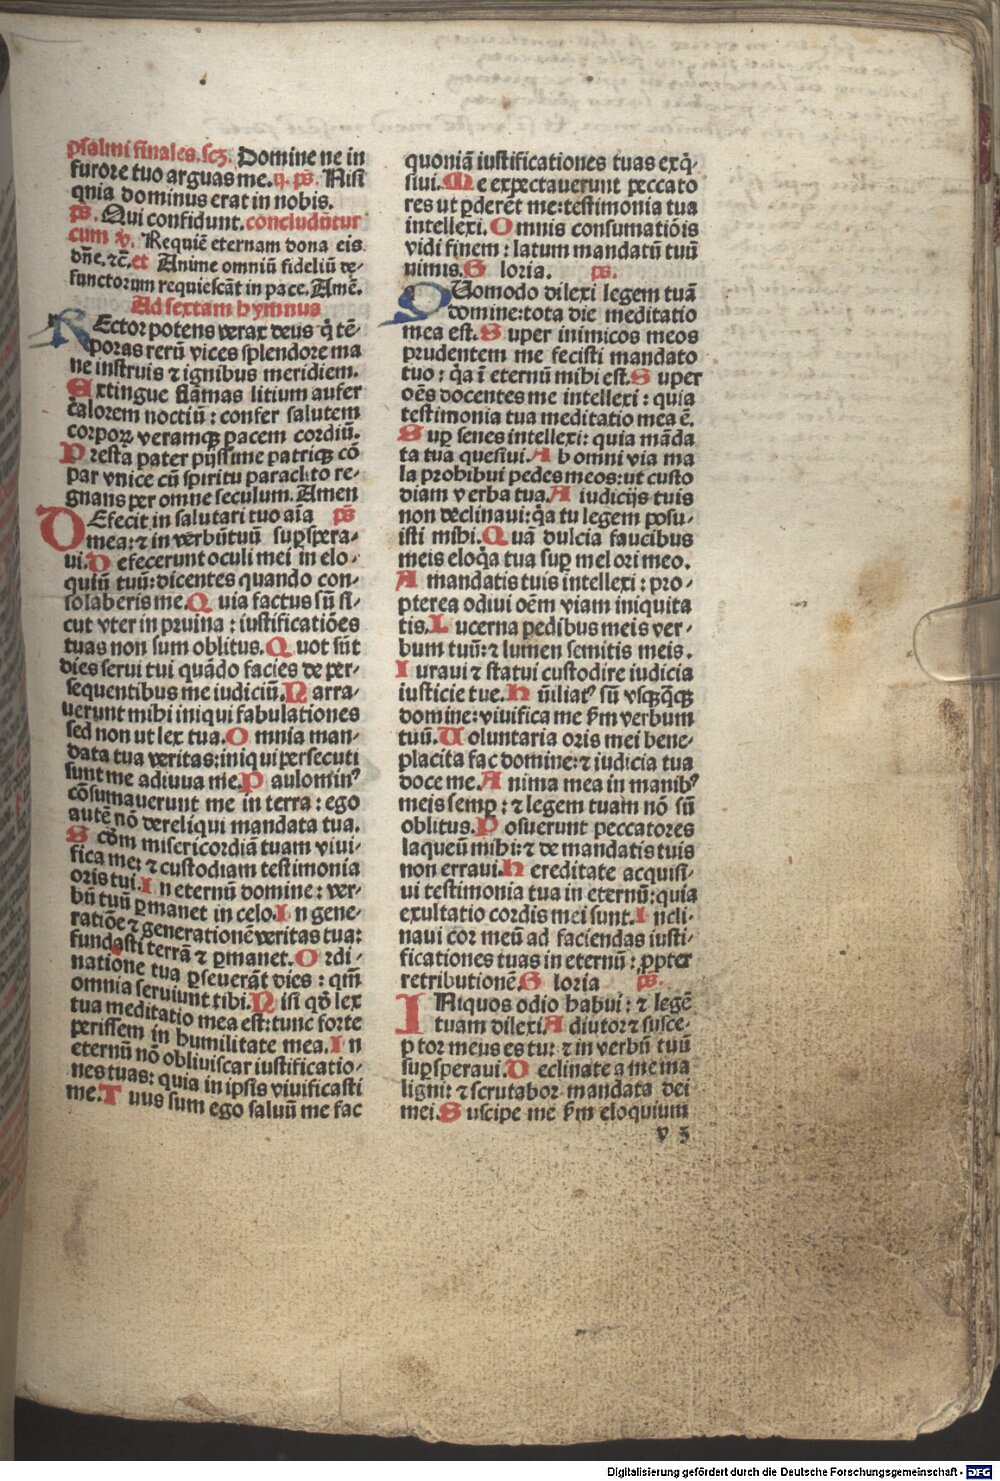 psalmi finales.scꝫ. Domine ne in
furore tuo arguas me.ij. ps̄. Nisi
qnia dominus erat in nobis.
ps̄. Qui confidunt. concludūtur
cum ꝟ. Requiē eternam dona eis
dn̄e. ⁊c̄. et Anime omniū fideliū de⸗
functorum requiescāt in pace. Amē.
Ad sextam hymnus
REctor potens verax deus q̇ tē⸗
poras rerū vices splendore ma
ne instruis ⁊ ignibus meridiem.
Extingue flāmas litium aufer
calorem noctiū : confer salutem
corpoꝝ veramqꝫ pacem cordiū.
Presta pater pijssime patriqꝫ cō
par vnice cū spiritu paraclito re⸗
gnans per omne seculum. Amen
DEfecit in salutari tuo aīa ps̄
mea: ⁊ in verbūtuū suꝑspera⸗
ui. Defecerunt oculi mei in elo⸗
quiū tuū: dicentes quando con⸗
solaberis me. Quia factus sū si⸗
cut vter in pruina : iustificatiōes
tuas non sum oblitus. Quot sūt
dies serui tui quādo facies de per⸗
sequentibus me iudiciū. Narra⸗
uerunt mihi iniqui fabulationes
sed non ut lex tua. Omnia man⸗
data tua veritas: iniqui persecuti
sunt me adiuua me. Paulomin⁹
cōsumauerunt me in terra : ego
autē nō dereliqui mandata tua.
Scd̄m misericordiā tuam viui⸗
fica me: ⁊ custodiam testimonia
oris tui. In eternū domine : ver⸗
bū tuū ꝑmanet in celo. In gene⸗
ratiōe ⁊ generationē veritas tua:
fundasti terrā ⁊ ꝑmanet. Ordi⸗
natione tua ꝑseuerāt dies : qm̄
omnia seruiunt tibi. Nisi qd̓ lex
tua meditatio mea est: tunc forte
perissem in humilitate mea. In
eternū nō obliuiscar iustificatio⸗
nes tuas: quia in ipsis viuificasti
me. Tuus sum ego saluū me fac
quoniā iustificationes tuas exq̇⸗
siui. Me expectauerunt peccato
res ut ꝑderēt me: testimonia tua
intellexi. Omnis consumatiōis
vidi finem : latum mandatū tuū
nimis. Gloria. ps̄.
QUomodo dilexi legem tuā
domine: tota die meditatio
mea est. Super inimicos meos
prudentem me fecisti mandato
tuo : q̇a ī eternū mihi est. Super
oēs docentes me intellexi : quia
testimonia tua meditatio mea ē.
Suꝑ senes intellexi: quia māda
ta tua quesiui. Ab omni via ma
la prohibui pedes meos: ut custo
diam verba tua. A iudicijs tuis
non declinaui: q̇a tu legem posu⸗
isti mihi. Quā dulcia faucibus
meis eloq̇a tua suꝑ mel ori meo.
A mandatis tuis intellexi : pro⸗
pterea odiui oēm viam iniquita
tis. Lucerna pedibus meis ver⸗
bum tuū: ⁊ lumen semitis meis.
Iuraui ⁊ statui custodire iudicia
iusticie tue. Hūiliat⁹ sū vsqꝫqꝫ
domine: viuifica me ẜm verbum
tuū. Uoluntaria oris mei bene⸗
placita fac domine: ⁊ iudicia tua
doce me. Anima mea in manib⁹
meis semꝑ : ⁊ legem tuam nō sū
oblitus. Posuerunt peccatores
laqueū mihi: ⁊ de mandatis tuis
non erraui. Hereditate acquisi⸗
ui testimonia tua in eternū: quia
exultatio cordis mei sunt. Incli⸗
naui cor meū ad faciendas iusti⸗
ficationes tuas in eternū : ꝓpter
retributionē. Gloria ps̄.
INiquos odio habui : ⁊ legē
tuam dilexi. Adiutor ⁊ susce⸗
ptor meus es tu: ⁊ in verbū tuū
suꝑsperaui. Declinate a me ma
ligni: ⁊ scrutabor mandata dei
mei. Suscipe me ẜm eloquium
v 3
Digitalisierung gefördert durch die Deutsche Forschungsgemeinschaft - DFG